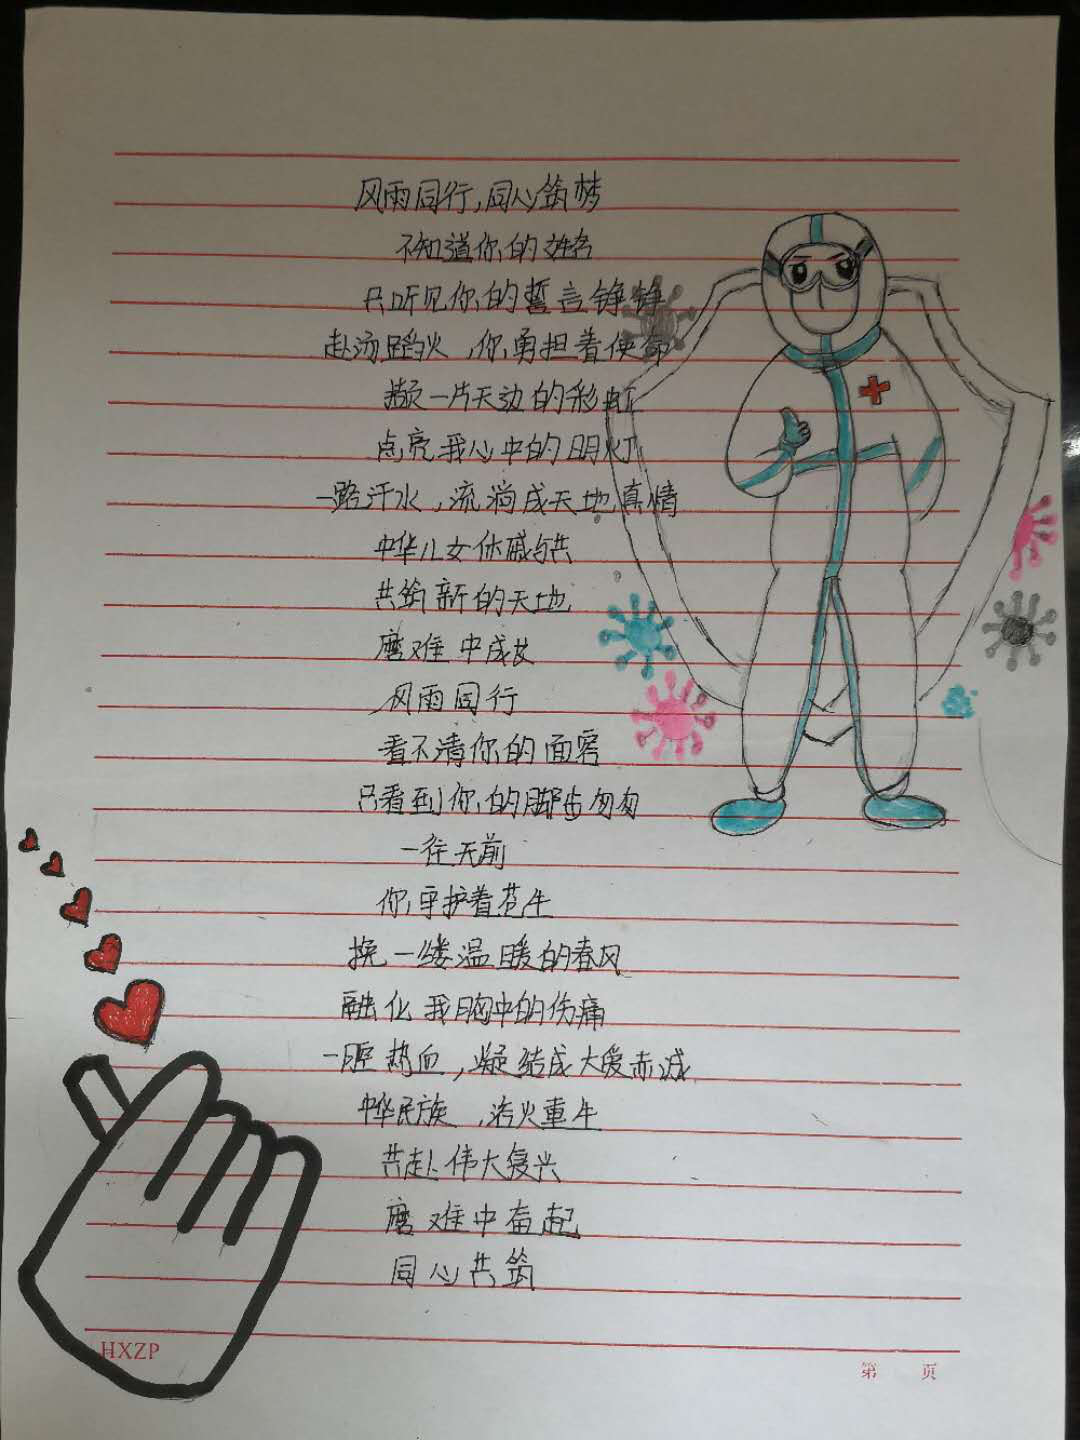 风雨同行，同心筑梦
不知道你的姓名
只听见你的誓言铮铮
赴汤蹈火，你勇担着使命
撷一片天边的彩虹
点亮我心中的明灯
一路汗水，流淌成天地真情
中华儿女休戚与共
共筑新的天地
磨难中成长
风雨同行
看不清你的面容
只看到你的脚步匆匆
一往无前
你守护着苍生
挽一缕温暖的春风
融化我胸中的伤痛
一腔热血，凝结成大爱赤诚
中华民族，浴火重生
共赴伟大复兴
磨难中奋起
同心共筑
HXZP
第 页